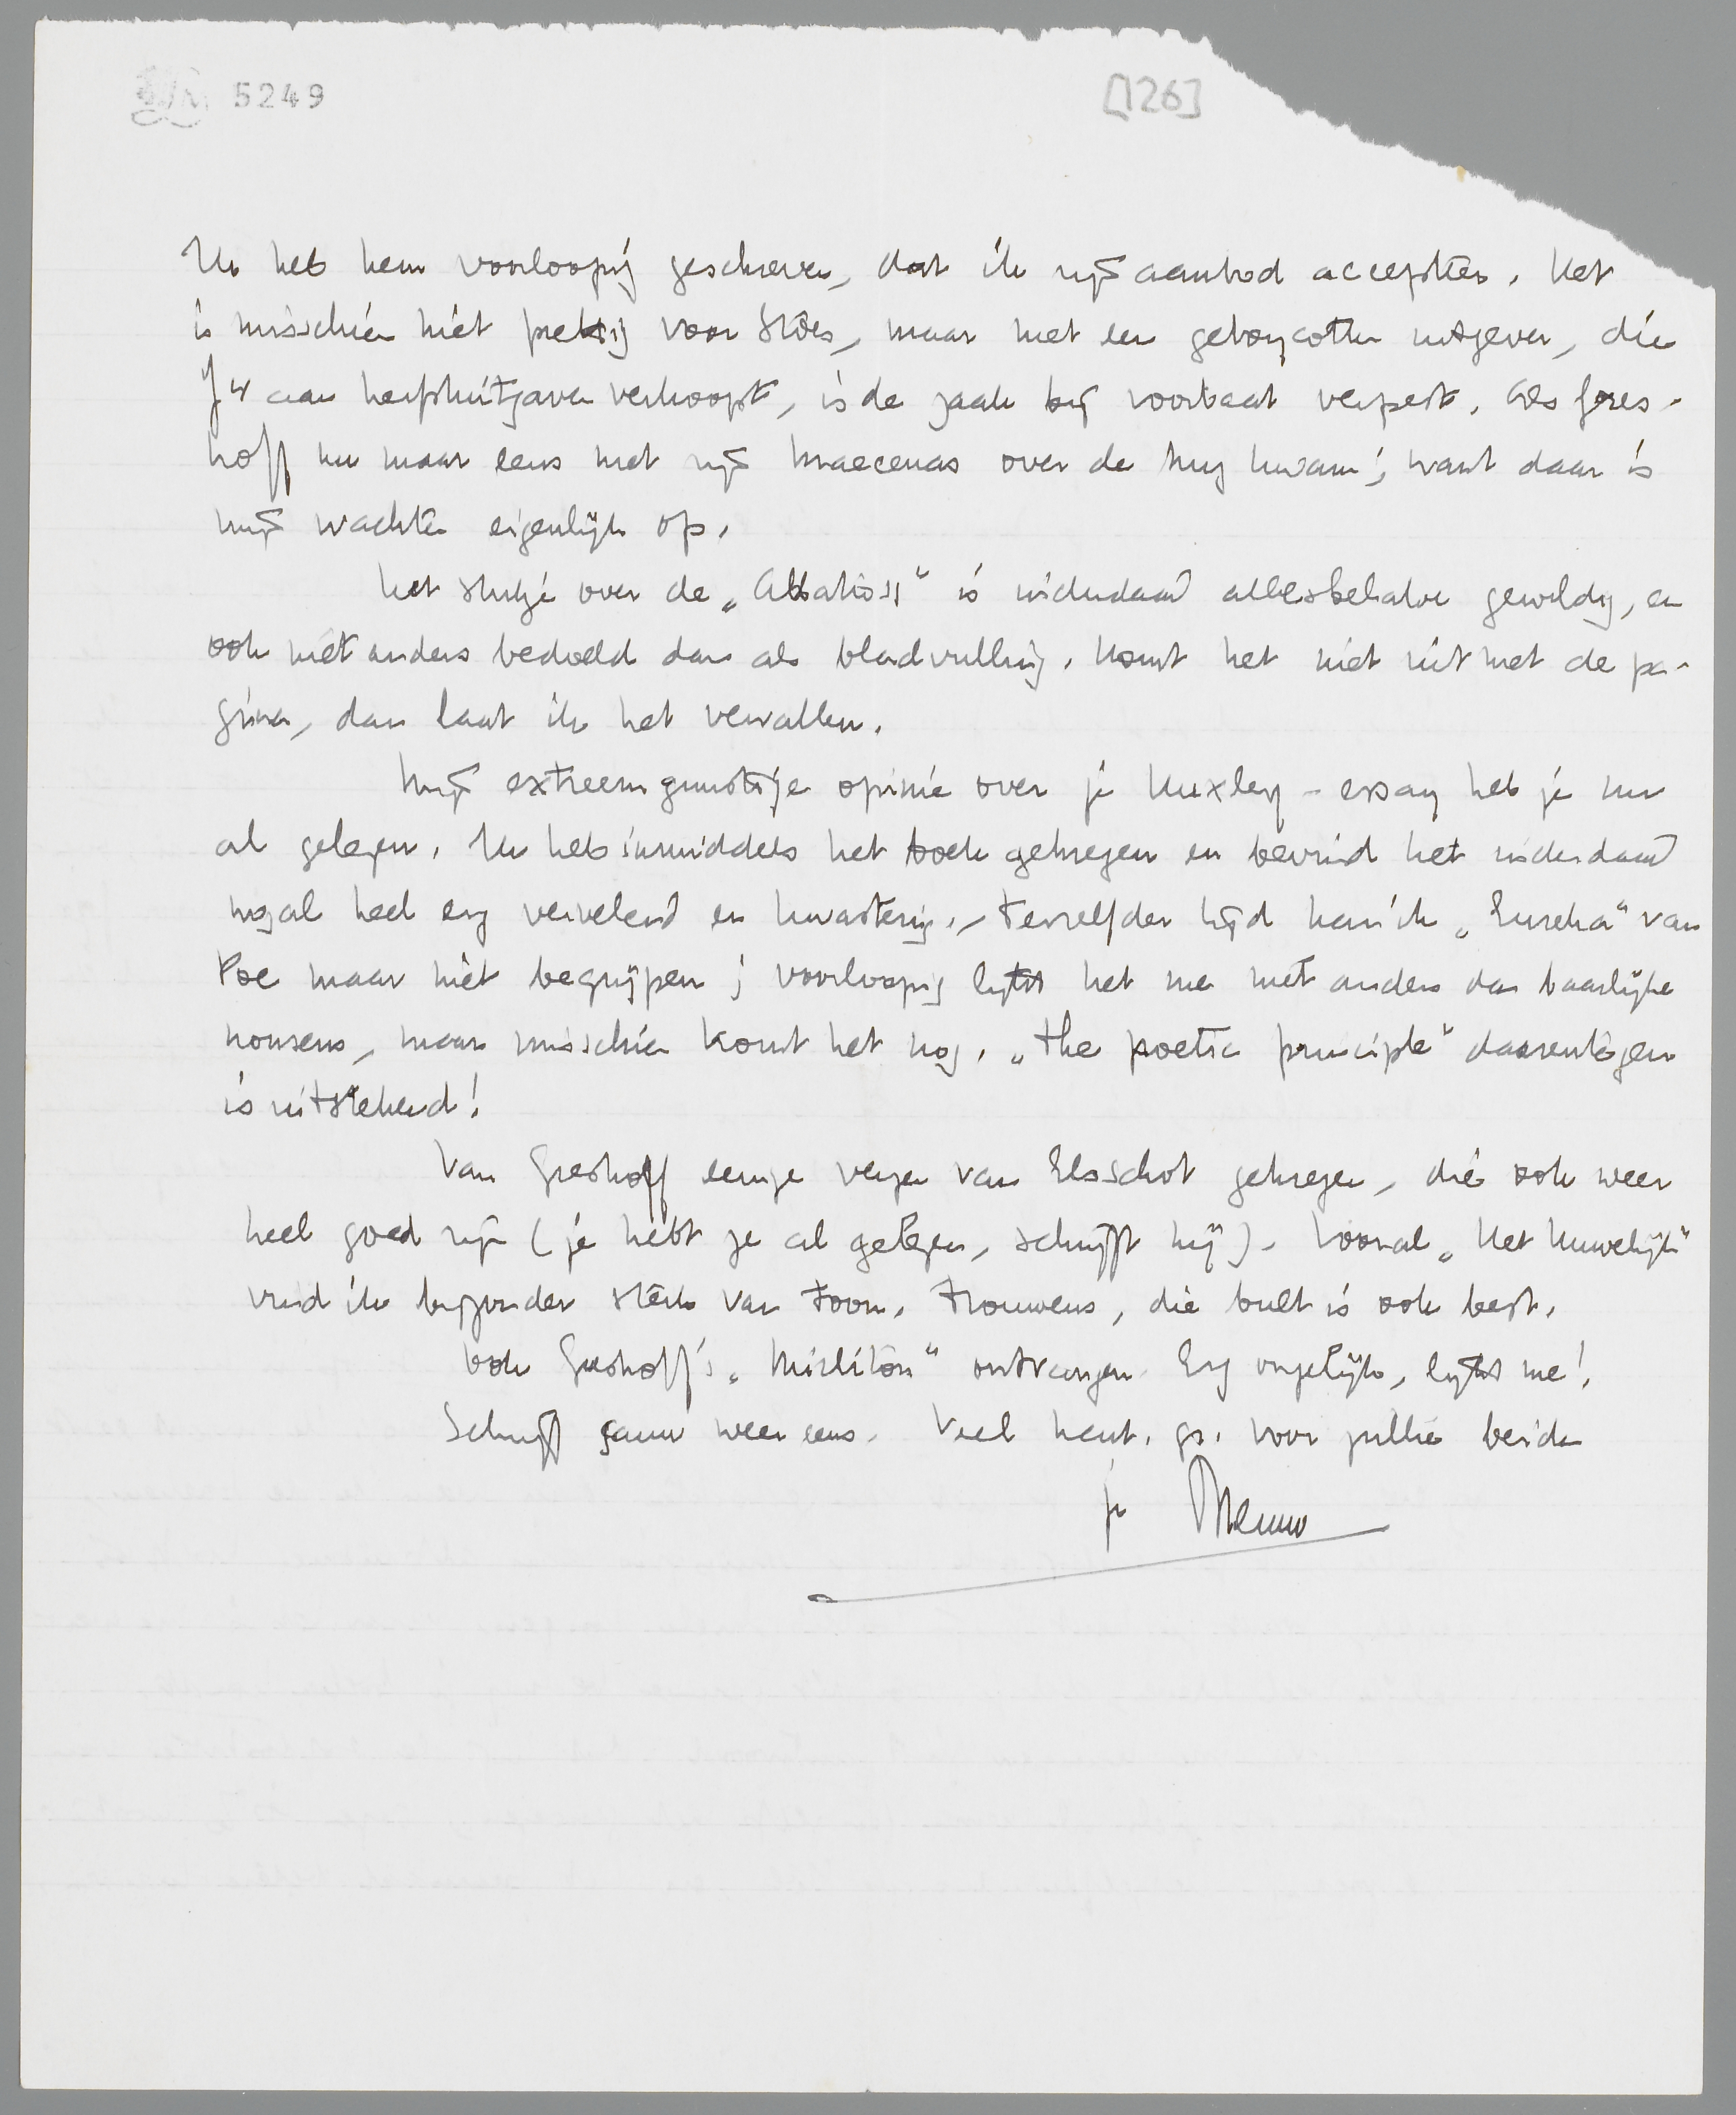 5249
[126]
Ik heb hem voorloopig geschreven, dat ik zijn aanbod accepteer. Het
is misschien niet prettig voor Stols, maar met een geboycotten uitgever, die
f 4 aan herfstuitgaven verkoopt, is de zaak bij voorbaat verpest. Als Gres-
hoff nu maar eens met zijn maecenas over de brug kwam; want daar is
mijn wachten eigenlijk op.
Het stukje over de „Albatross" is inderdaad allesbehalve geweldig, en
ook niet anders bedoeld dan als bladvulling. Komt het niet uit met de pa-
gina, dan laat ik het vervallen.
Mijn extreem gunstige opinie over je Huxley-essay heb je nu
al gelezen. Ik heb inmiddels het boek gekregen en bevind het inderdaad
nogal heel erg vervelend en kwasterig. - Terzelfder tijd kan ik „Eureka" van
Poe maar niet begrijpen; voorloopig lijkt het me niet anders dan baarlijke
nonsens, maar misschien komt het nog. „The poetic principle" daarentegen
is uitstekend!
Van Greshoff eenige verzen van Elsschot gekregen, die ook weer
heel goed zijn (je hebt ze al gelezen, schrijft hij). Vooral „Het Huwelijk"
vind ik bijzonder sterk van toon. Trouwens, die bult is ook best.
Ook Greshoff's „Mirliton" ontvangen. Erg ongelijk, lijkt me!
Schrijf gauw weer eens. Veel hart. gr. voor jullie beide
je Menno